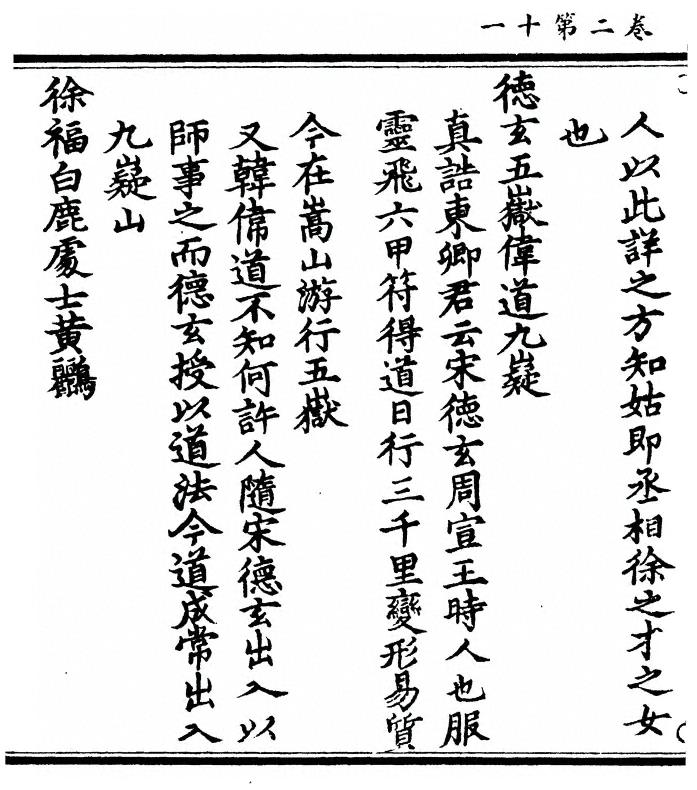 卷二第十一
人以此詳之方知姑即丞相徐之才之女
也
徳玄五嶽偉道九嶷
真誥東卿君云宋徳玄周宣王時人也服
靈飛六甲符得道日行三千里變形易質
今在嵩山游行五嶽
又韓偉道不知何許人隨宋德玄出入以
師事之而德玄授以道法今道成常出入
九嶷山
徐福白鹿處士黃鸝